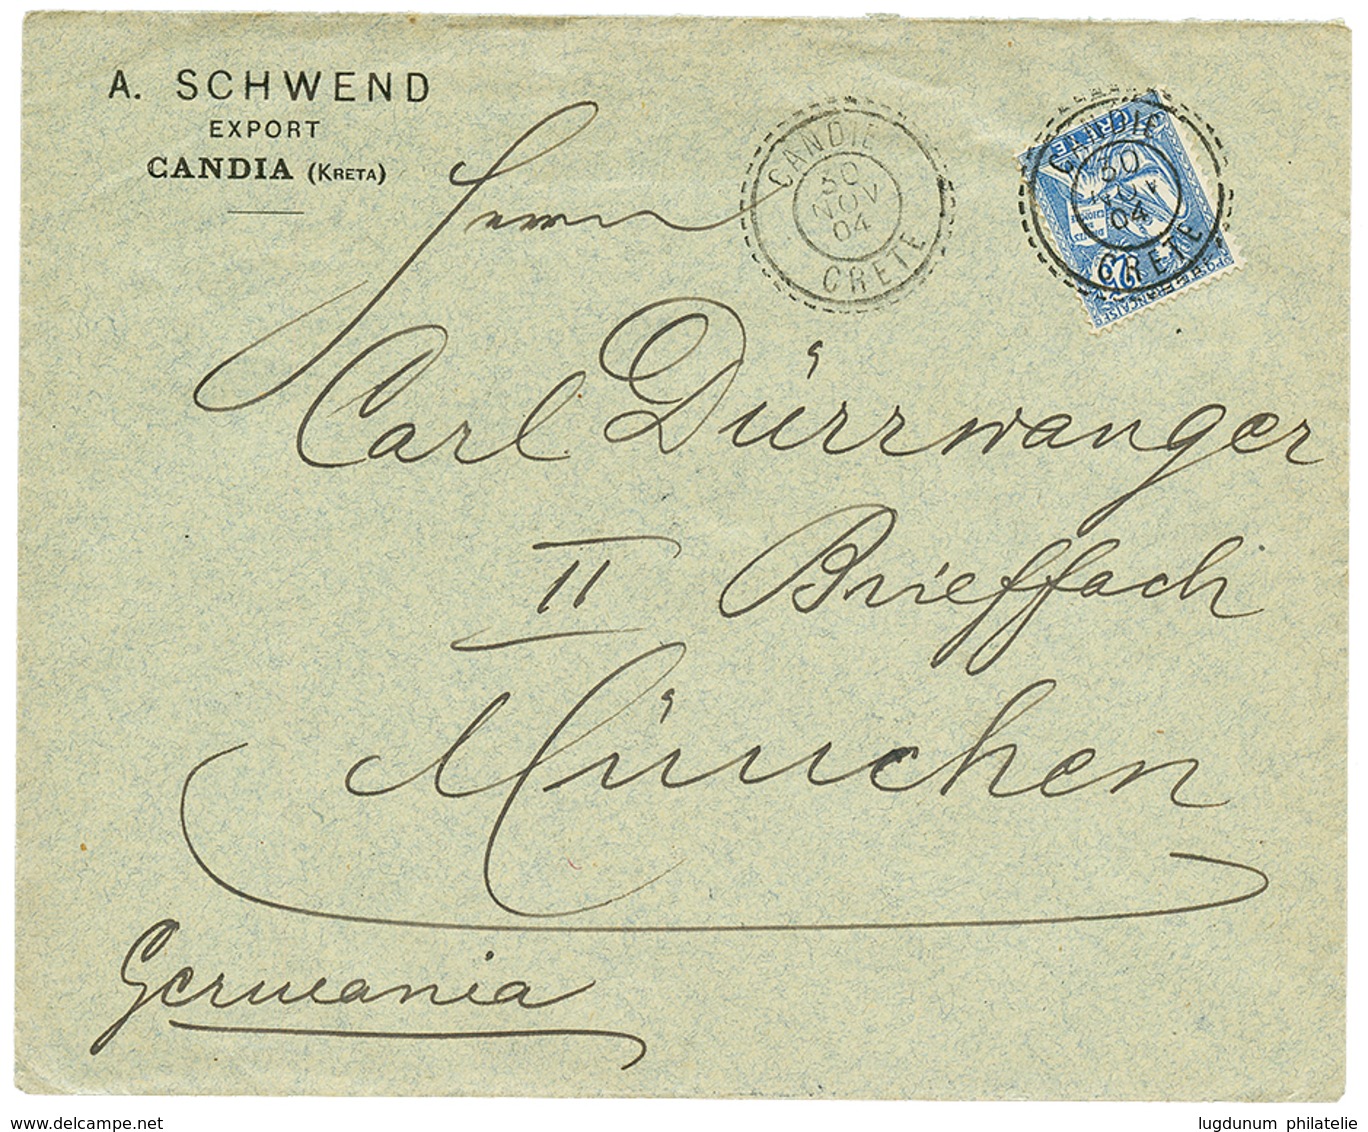 A. SCHWEND
EXPORT
CANDIA (KRETA)
CANDIE
30
NOV
04
CRETE
CANDIE
30
NOV
04
CRETE
CRETE
25
Herrn
Carl Dürrwanger
II Brieffach
München
Germania
www.delcampe.net
lugdunum philatelie